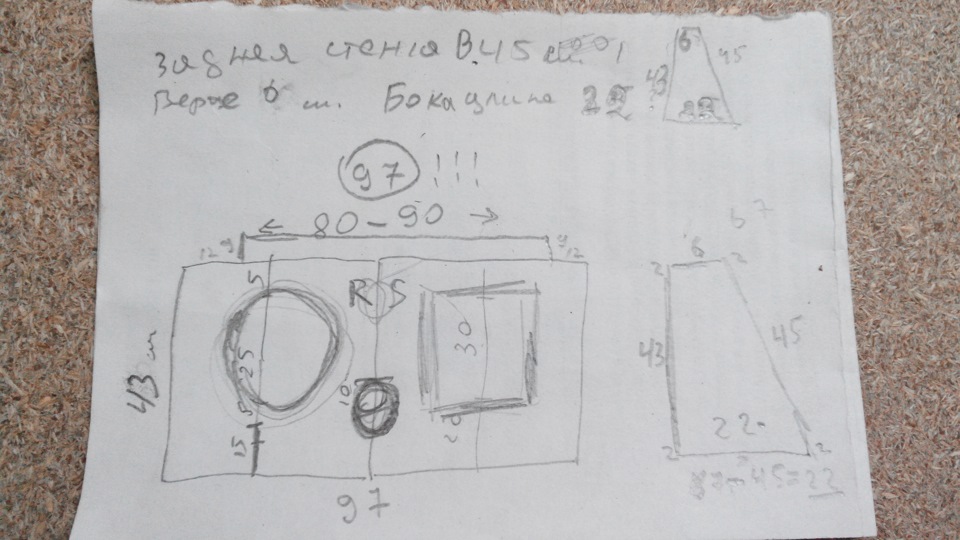 Задняя стенка В.45 см.
Верхе 6 см. Бока длина 22
6
43
45
22
97 !!!
80-90
12 9
9 12
5
R S
6 7
6
2
2
43 см
25
30
10
43
45
15
20
22
2
2
97
45=22